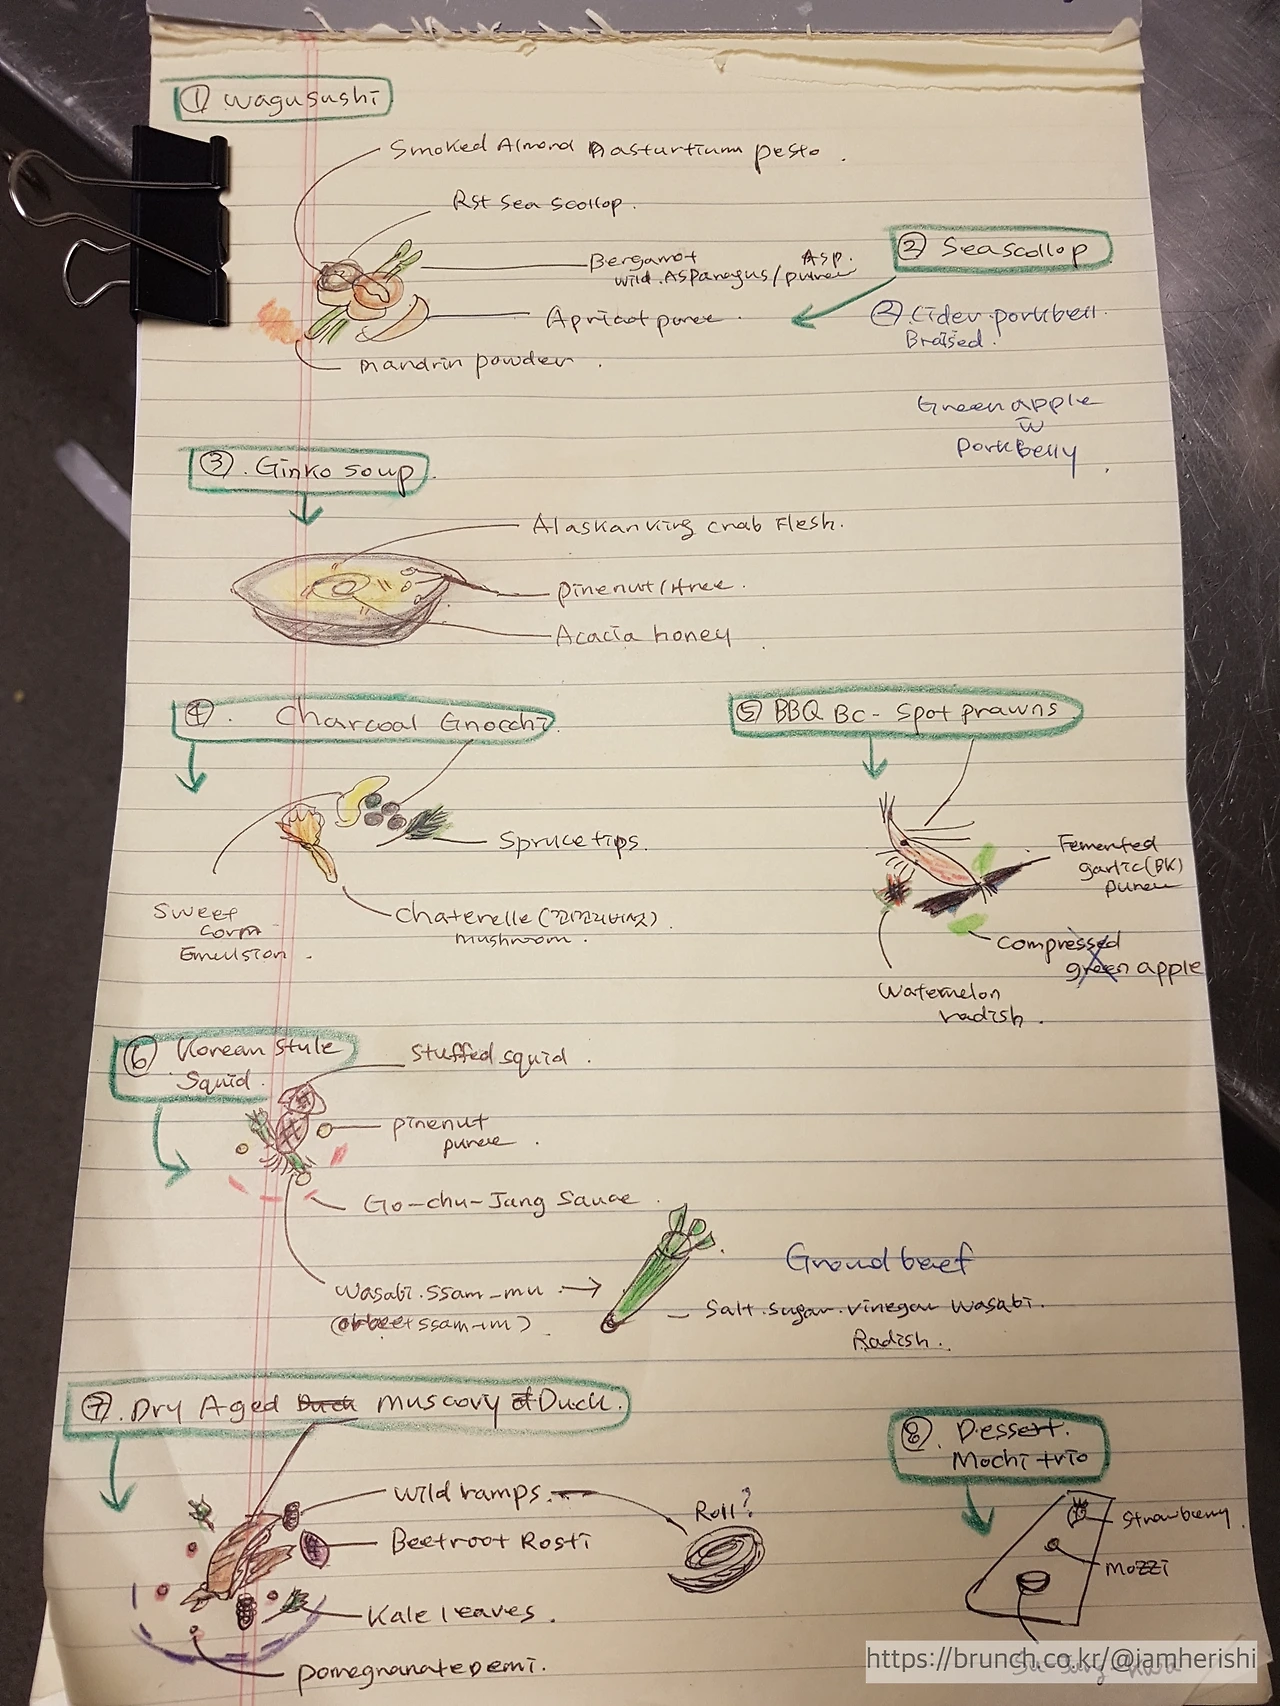 ① Wagusushi
Smoked Almond Nasturtium pesto .
Rst Sea Scollop.
Bergamot
wild. Asparagus / Asp. puree
Apricot puree .
mandrin powder .
② Seascollop
②. Cider porkbell.
Braised.
Green apple
w
porkbelly .
③. Ginko soup.
Alaskanking crab Flesh.
pinenut
Acacia honey .
④. Charcoal Gnocchi.
Spruce tips.
Chaterelle (꾀꼬리버섯)
mushroom .
Sweet
Corn
Emulsion .
⑤ BBQ BC - Spot prawns
Femented
garlic (BK)
puree
Compressed
green apple
Watermelon
radish .
⑥ Korean style
Squid.
Stuffed squid .
pinenut
puree .
Go-chu-Jang Sauce .
Wasabi. ssam-mu
Ground beef
Salt. sugar. vinegar Wasabi.
Radish.
⑦. Dry Aged Duck muscovy Duck.
wild ramps.
Roll?
Beetroot Rosti
Kale leaves .
pomegranate demi.
⑧. Dessert.
Mochi trio
Strawberry .
Mozzi
https://brunch.co.kr/@iamherishi